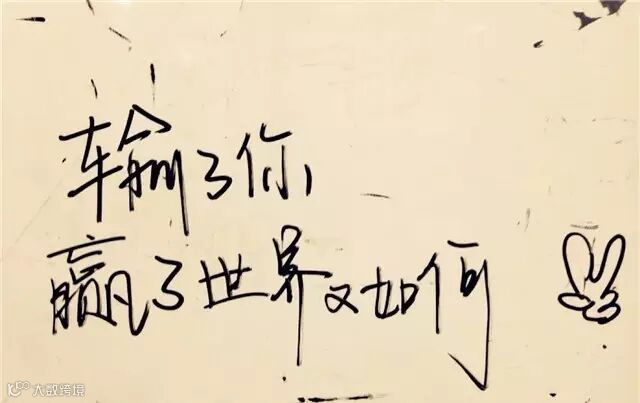 输了你,
赢了世界又如何
大数跨境